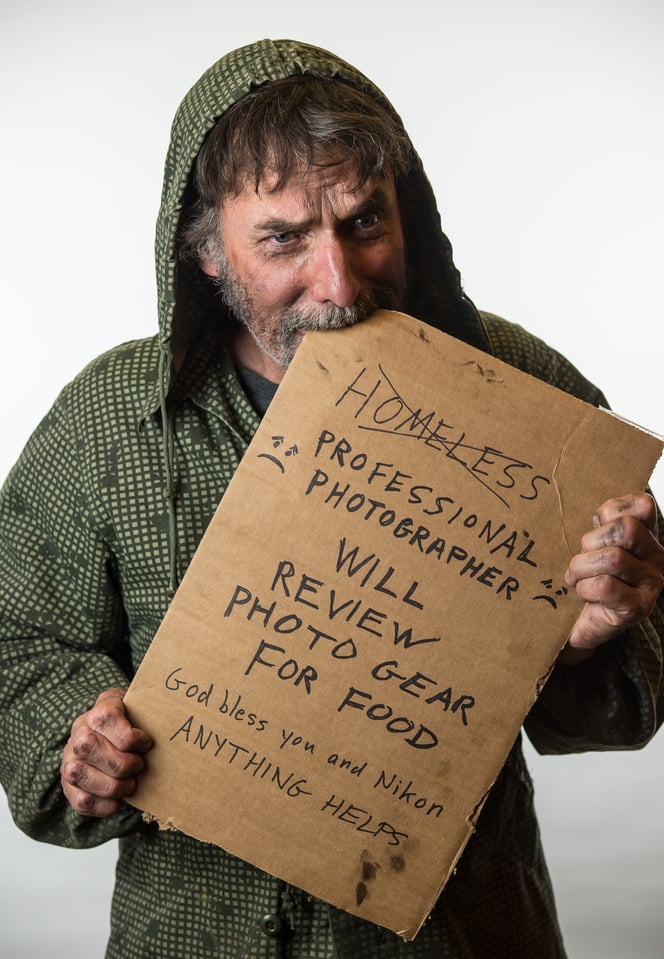 HOMELESS
PROFESSIONAL
PHOTOGRAPHER
WILL
REVIEW
PHOTO GEAR
FOR FOOD
God bless you and Nikon
ANYTHING HELPS